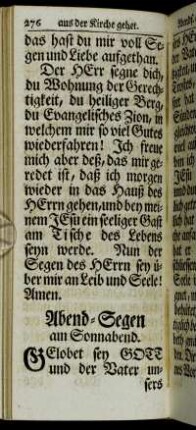 276 aus der Kirche gehet.
das hast du mir voll Se-
gen und Liebe aufgethan.
Der HErr segne dich,
du Wohnung der Gerech-
tigkeit, du heiliger Berg,
du Evangelisches Zion, in
welchem mir so viel Gutes
wiederfahren! Ich freue
mich aber deß, das mir ge-
redet ist, daß ich morgen
wieder in das Hauß des
HErrn gehen, und bey mei-
nem JEsu ein seeliger Gast
am Tische des Lebens
seyn werde. Nun der
Segen des HErrn sey ü-
ber mir an Leib und Seele!
Amen.
Abend-Segen
am Sonnabend.
GElobet sey GOTT
und der Vater un-
sers